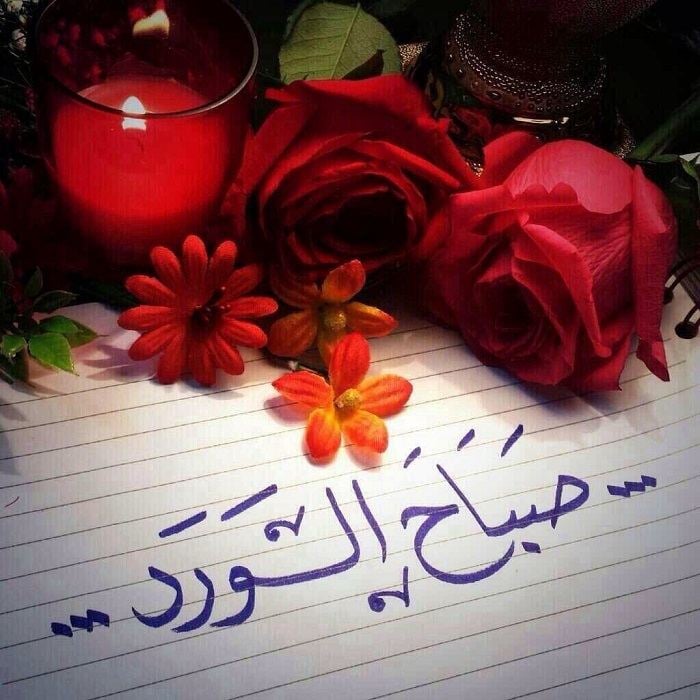 ... صَبَاحَ الْوَرَد ...